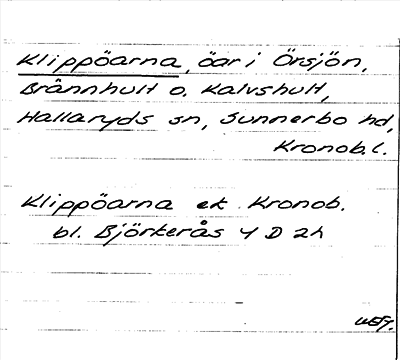 Klippöarna, öar i Örsjön,
Brännhult o. Kalvshult,
Hallaryds sn, Sunnerbo hd,
Kronob.l.
Klippöarna ek Kronob.
bl. Björkerås 4 D 2h